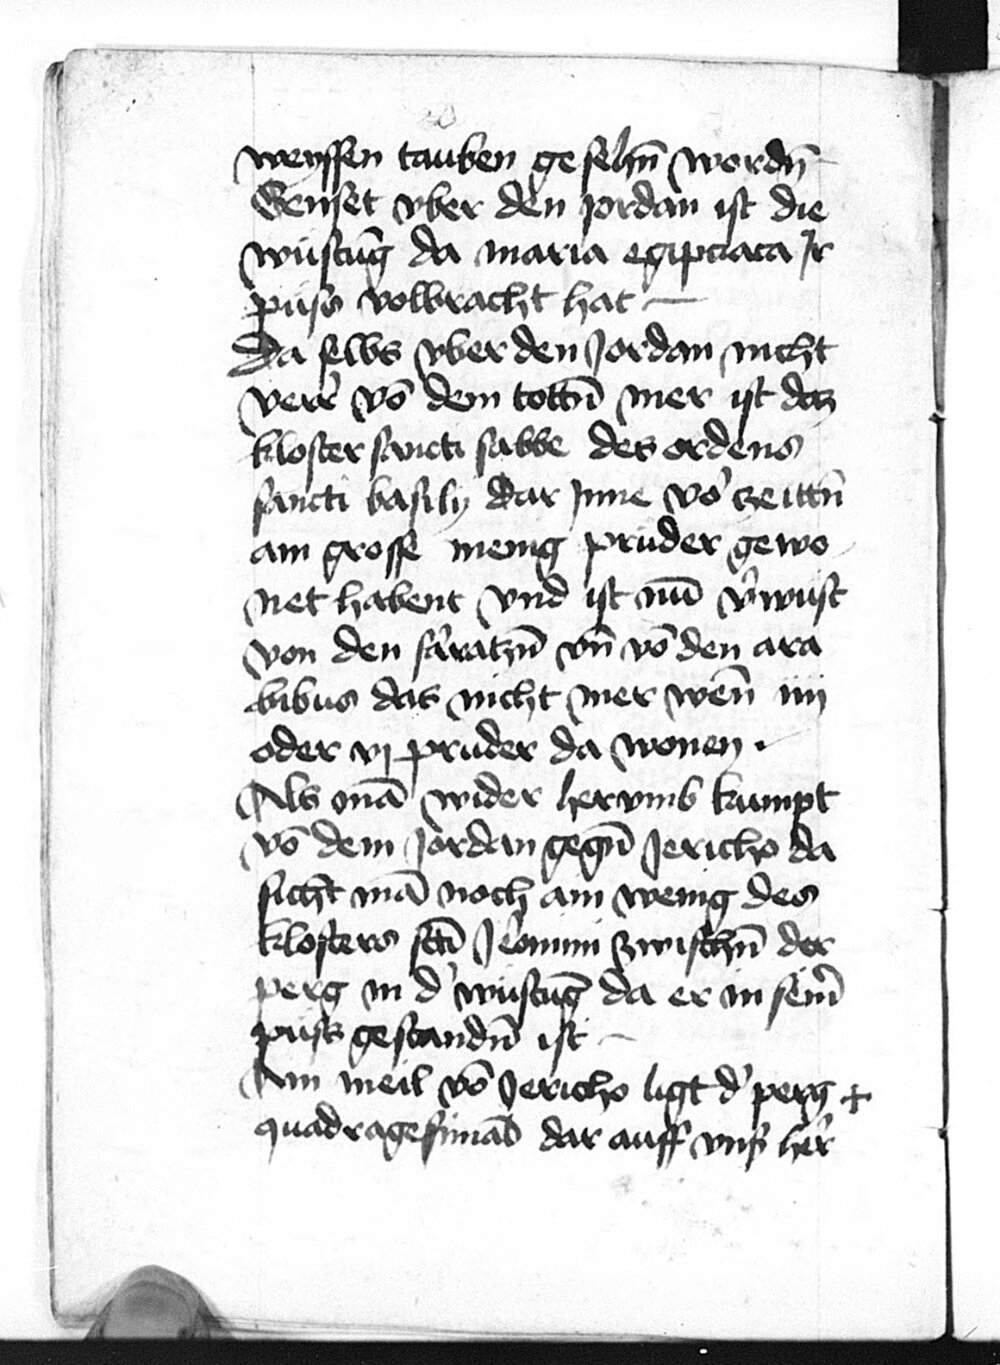 weyssen tauben gesehn̄ wordn̄
Genset vber den jordan ist die
wüstūg da maria egipciaca Jr
puss volbracht hat —
Da selbs vber den Jordan nicht
verr vō dem tottn̄ mer ist daz
kloster sancti sabbe des ordens
sancti basilij dar Jnne vor zeittn̄
ain grosse menig prüder gewo
net habent vnd ist nu͞ v'wüst
von den saratzn̄ vn̄ vō den ara
bibus das nicht mer wen̄ iiij
oder vj pruder da wonen .
Als mā wider hervmb kumpt
vō dem Jordan gegn̄ Jericho da
sicht mā noch ain wenig des
klosters sct̄i Jeronimi zwischn̄ der
perg in d' wüstūg da er in sein̄
puss gestandn̄ ist —
Ain meil vō Jericho ligt d' perg +
quadragesimal dar auff vnser h'r